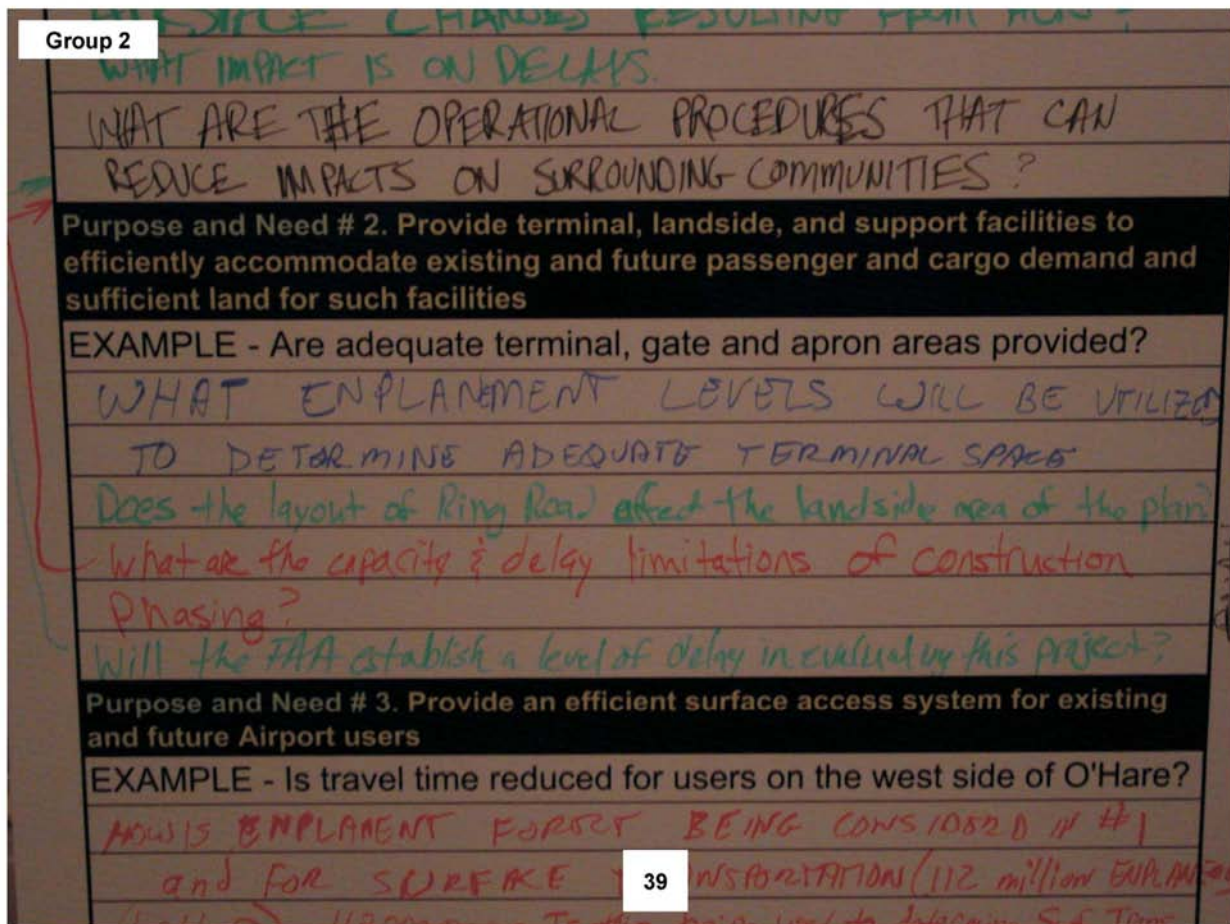 Group 2
CHANGES RESULTING FROM
WHAT IMPACT IS ON DELAYS.
WHAT ARE THE OPERATIONAL PROCEDURES THAT CAN
REDUCE IMPACTS ON SURROUNDING COMMUNITIES?
Purpose and Need # 2. Provide terminal, landside, and support facilities to
efficiently accommodate existing and future passenger and cargo demand and
sufficient land for such facilities
EXAMPLE - Are adequate terminal, gate and apron areas provided?
WHAT ENPLANEMENT LEVELS WILL BE UTILIZED
TO DETERMINE ADEQUATE TERMINAL SPACE
Does the layout of Ring Road affect the landside area of the plan?
What are the capacity & delay limitations of construction
Phasing?
Will the FAA establish a level of delay in evaluating this project?
Purpose and Need # 3. Provide an efficient surface access system for existing
and future Airport users
EXAMPLE - Is travel time reduced for users on the west side of O'Hare?
HOW IS ENPLAMENT BEING CONSIDERED IN #1
and FOR SURFACE (112 million
39